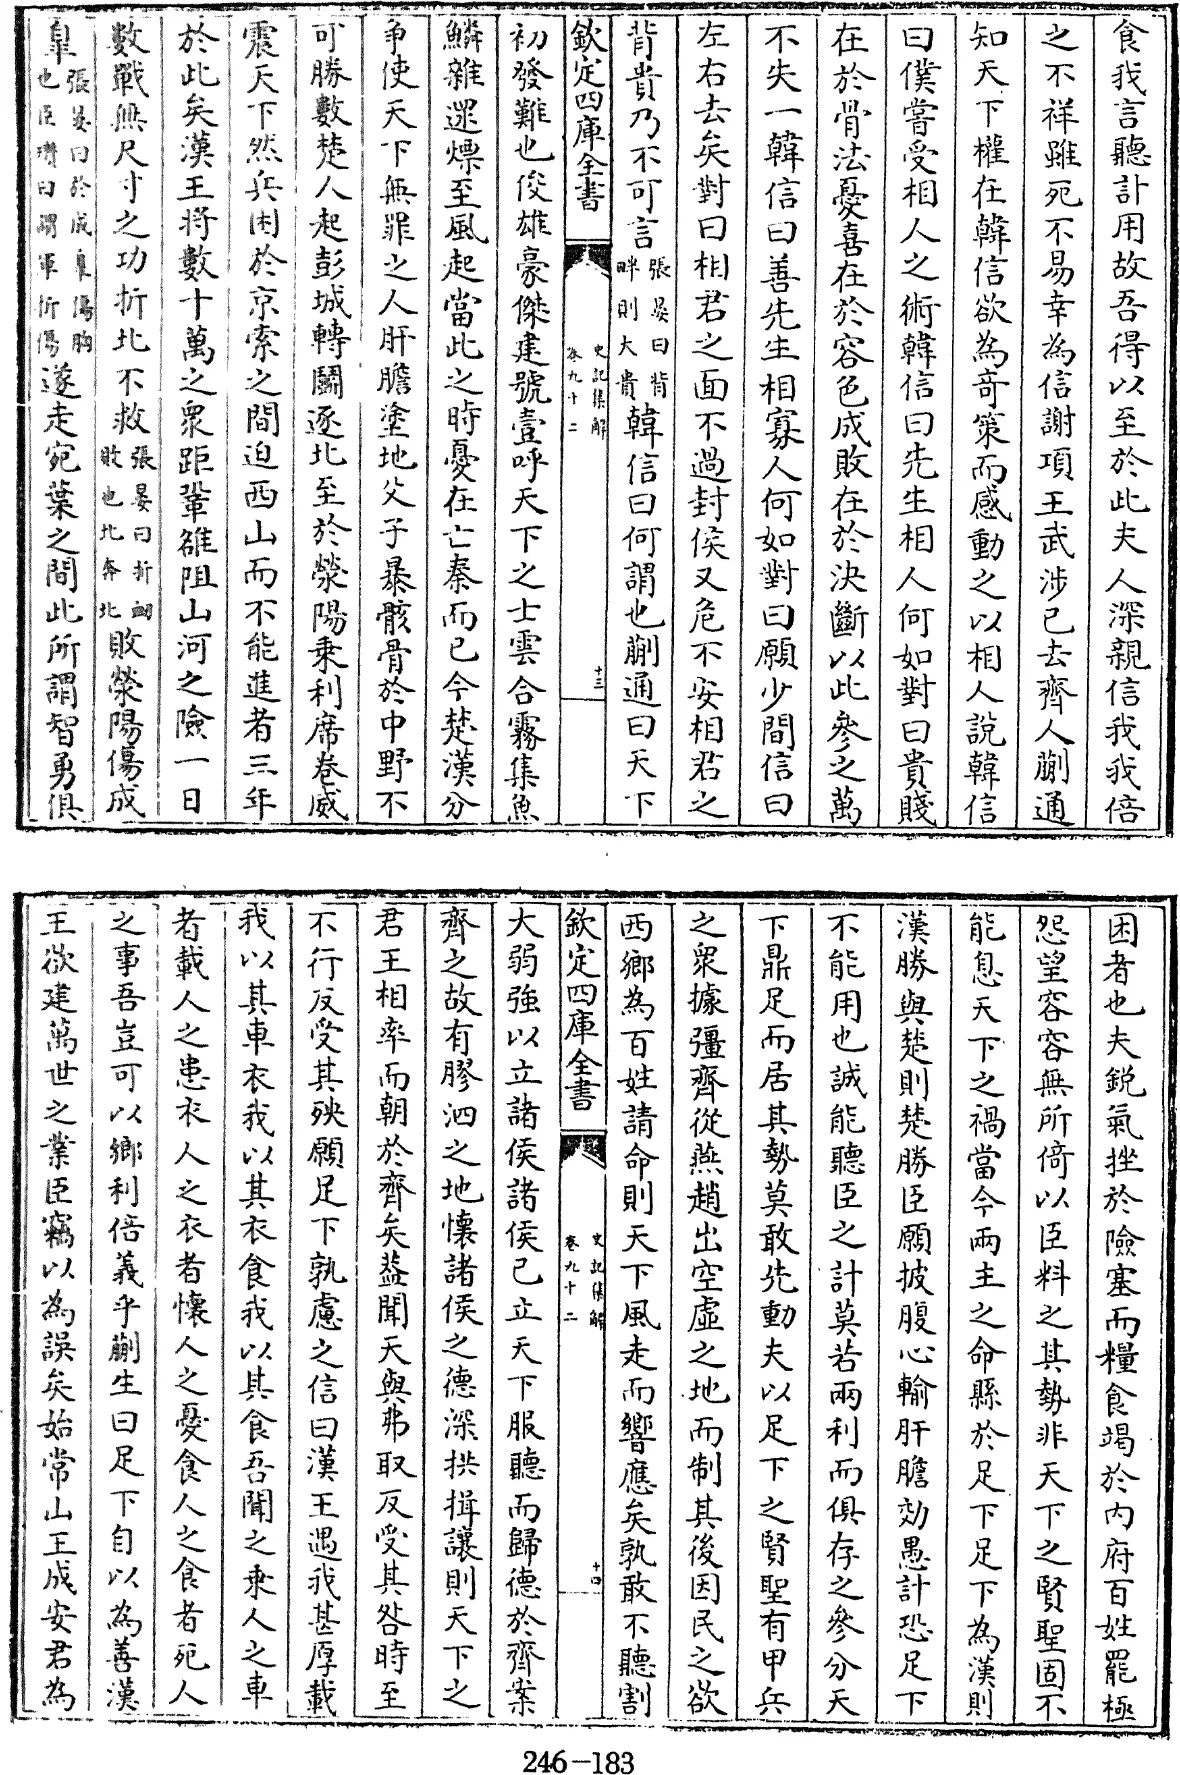 食我言聽計用故吾得以至於此夫人深親信我我倍
之不祥雖死不易幸為信謝項王武涉已去齊人蒯通
知天下權在韓信欲為奇策而感動之以相人說韓信
曰僕嘗受相人之術韓信曰先生相人何如對曰貴賤
在於骨法憂喜在於容色成敗在於決斷以此參之萬
不失一韓信曰善先生相寡人何如對曰願少間信曰
左右去矣對曰相君之面不過封侯又危不安相君之
背貴乃不可言張晏曰背畔則大貴韓信曰何謂也蒯通曰天下
欽定四庫全書 史記集解 卷九十二 十三
初發難也俊雄豪傑建號壹呼天下之士雲合霧集魚
鱗雜遝熛至風起當此之時憂在亡秦而已今楚漢分
爭使天下無罪之人肝膽塗地父子暴骸骨於中野不
可勝數楚人起彭城轉鬭逐北至於滎陽乗利席卷威
震天下然兵困於京索之間迫西山而不能進者三年
於此矣漢王將數十萬之衆距鞏雒阻山河之險一日
數戰無尺寸之功折北不救張晏曰折衂敗也北奔北敗滎陽傷成
臯張晏曰於成臯傷胸也臣瓚曰謂軍折傷遂走宛葉之間此所謂智勇俱
困者也夫鋭氣挫於險塞而糧食竭於内府百姓罷極
怨望容容無所倚以臣料之其勢非天下之賢聖固不
能息天下之禍當今兩主之命縣於足下足下為漢則
漢勝與楚則楚勝臣願披腹心輸肝膽効愚計恐足下
不能用也誠能聽臣之計莫若兩利而俱存之參分天
下鼎足而居其勢莫敢先動夫以足下之賢聖有甲兵
之衆據彊齊從燕趙出空虛之地而制其後因民之欲
西鄉為百姓請命則天下風走而響應矣孰敢不聽割
欽定四庫全書 史記集解 卷九十二 十四
大弱強以立諸侯諸侯已立天下服聽而歸德於齊案
齊之故有膠泗之地懷諸侯之德深拱揖讓則天下之
君王相率而朝於齊矣葢聞天與弗取反受其咎時至
不行反受其殃願足下孰慮之信曰漢王遇我甚厚載
我以其車衣我以其衣食我以其食吾聞之乗人之車
者載人之患衣人之衣者懷人之憂食人之食者死人
之事吾豈可以鄉利倍義乎蒯生曰足下自以為善漢
王欲建萬世之業臣竊以為誤矣始常山王成安君為
246-183